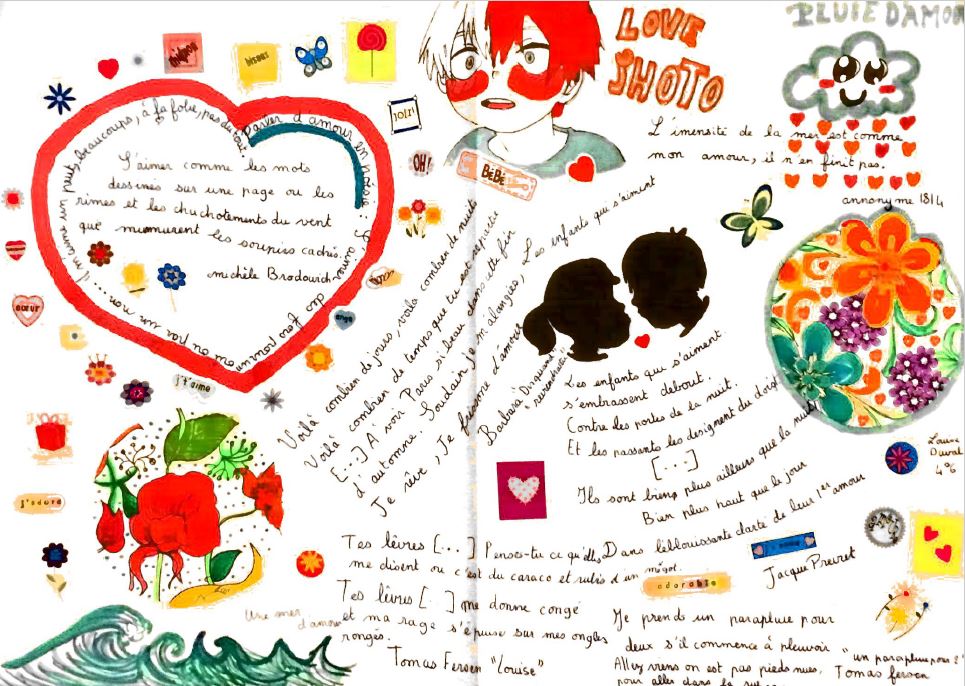 LOVE
SHOTO
PLUIE D'AMOUR
bisous
JOIN
OH!
BÉBÉ
Parler d'amour en poésie
un peu, beaucoups, à la folie, pas du tout.
S'aimer comme les mots
dessinés sur une page ou les
rimes et les chuchotements du vent
que murmurent les soupirs cachés.
michèle Brodowich
L'imensité de la mer est comme
mon amour, il n'en finit pas.
annonyme 1814
SŒUR
ange
j't'aime
j'adore
Voilà combien de jours, voilà combien de nuits
Voilà combien de temps que tu es repartie
[...] A voir Paris si beau dans cette fin
d'automne, Soudain je m'alanguis,
Je rêve, Je frissonne d'amour
Les enfants qui s'aiment
Les enfants qui s'aiment
s'embrassent debout.
Contre les portes de la nuit.
Et les passants les designent du doigt
[...]
Ils sont biens plus ailleurs que la nuit
Bien plus haut que le jour
Dans l'éblouissante clarté de leur 1er amour
Jacque Prevert
Louise
Duval
4°6
Tes lèvres [...] Penses-tu ce qu'elles
me disent ou c'est du caraco et rubis d'un mogol.
Tes lèvres [...] me donne congé
et ma rage s'épuise sur mes ongles
rongés.
Tomas Fersen "Louise"
adorable
Une mer
d'amour
Je prends un parapluie pour
deux s'il commence à pleuvoir
"un parapluie pour 2"
Tomas fersen
Allez viens on est pas pieds nues,
pour aller dans la rue